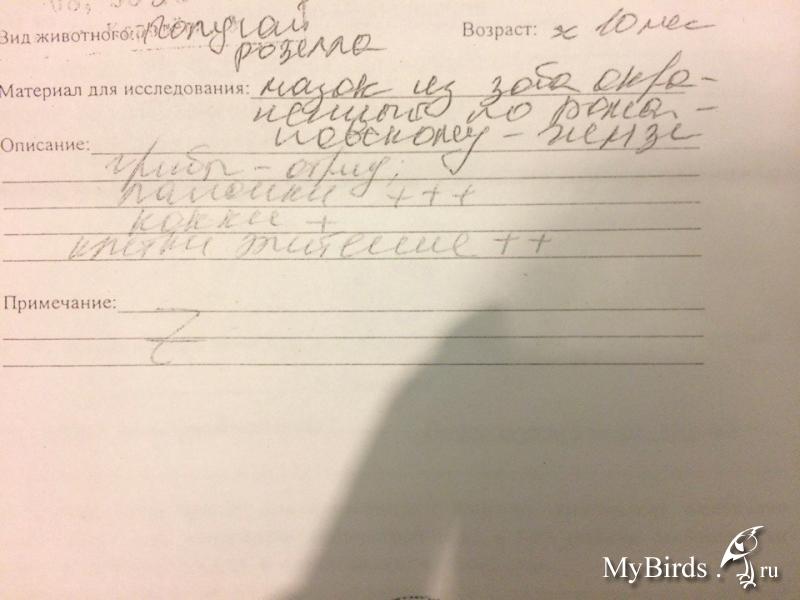 Вид животного: Попугай
розелла
Возраст: 10 мес
Материал для исследования: мазок из зоба окра-
шенный по Рома-
новскому - Гимзе
Описание:
грибы - отриц;
палочки +++
кокки +
клетки эпителие ++
Примечание:
MyBirds.ru